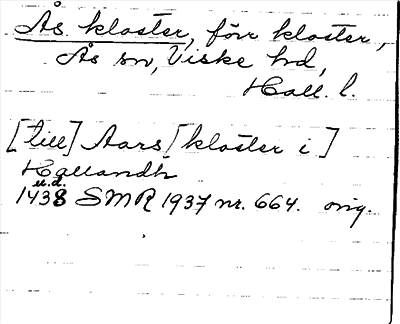 Ås kloster, förr kloster,
Ås sn, Viske hd,
Hall. l.
[till] Aars [kloster i]
Hallandh
u.d.
1438 SMR 1937 nr. 664. orig.